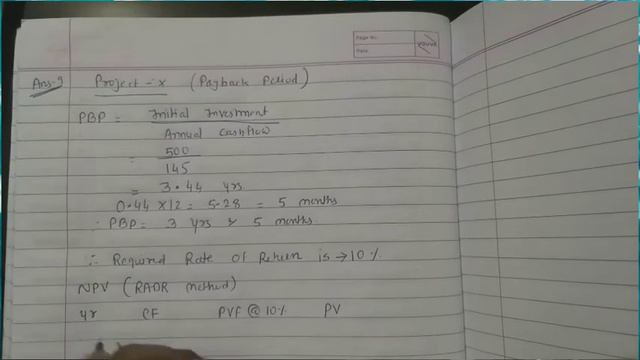 Page No.
Date
youva
Ans-9 Project - X (Payback Period)
PBP = Initial Investment
Annual Cashflow
= 500
145
= 3.44 yrs
0.44 X12 = 5.28 = 5 months
∴ PBP = 3 yrs & 5 months.
∴ Required Rate of Return is → 10 %.
NPV (RADR method)
yr CF PVF @ 10% PV